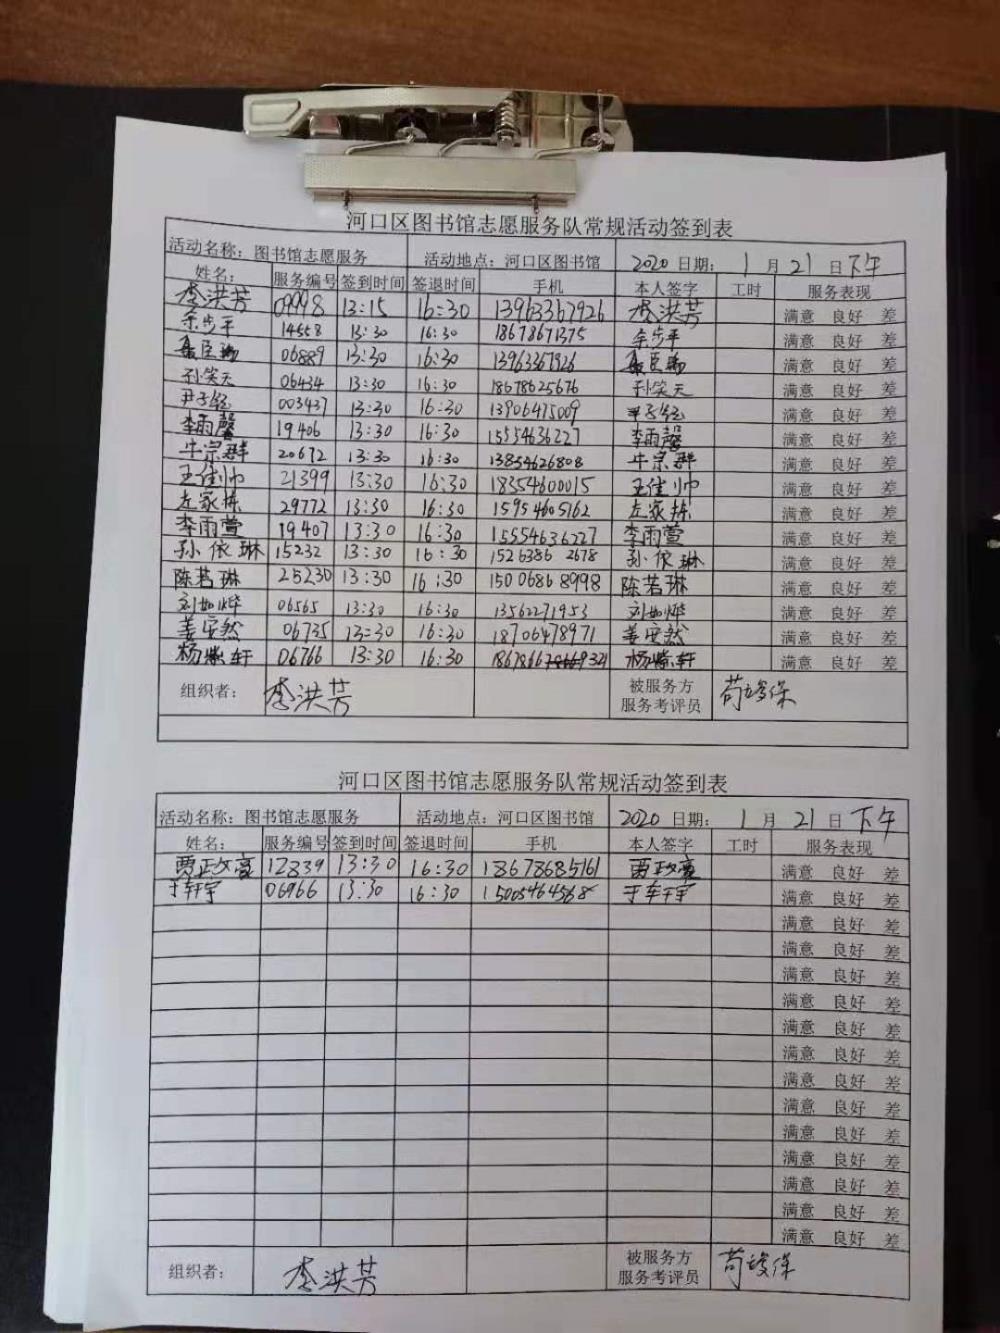 河口区图书馆志愿服务队常规活动签到表
活动名称：图书馆志愿服务 活动地点：河口区图书馆 2020 日期： 1 月 21 日 下午
姓名： 服务编号 签到时间 签退时间 手机 本人签字 工时 服务表现
李洪芳 09998 13:15 16:30 13963367926 李洪芳 满意 良好 差
余步平 14558 13:30 16:30 18678671375 余步平 满意 良好 差
06889 13:30 16:30 13963367926 满意 良好 差
孙笑天 06434 13:30 16:30 18678625676 孙笑天 满意 良好 差
尹子钰 003437 13:30 16:30 13906475009 尹子钰 满意 良好 差
李雨馨 19406 13:30 16:30 15554636227 李雨馨 满意 良好 差
牛宗群 20672 13:30 16:30 13854626808 牛宗群 满意 良好 差
王佳帅 21399 13:30 16:30 18354600015 王佳帅 满意 良好 差
左家栋 29772 13:30 16:30 15954605162 左家栋 满意 良好 差
李雨萱 19407 13:30 16:30 15554636227 李雨萱 满意 良好 差
孙依琳 15232 13:30 16:30 1526386 2678 孙依琳 满意 良好 差
陈若琳 25230 13:30 16:30 15006868998 陈若琳 满意 良好 差
刘如烨 06565 13:30 16:30 13562271953 刘如烨 满意 良好 差
姜安然 06735 13:30 16:30 18706478971 姜安然 满意 良好 差
杨紫轩 06766 13:30 16:30 杨紫轩 满意 良好 差
组织者： 李洪芳 被服务方 服务考评员
河口区图书馆志愿服务队常规活动签到表
活动名称：图书馆志愿服务 活动地点：河口区图书馆 2020 日期： 1 月 21 日 下午
姓名： 服务编号 签到时间 签退时间 手机 本人签字 工时 服务表现
贾政文豪 12839 13:30 16:30 18678685161 满意 良好 差
于轩宇 06966 13:30 16:30 15005464568 于轩宇 满意 良好 差
满意 良好 差
满意 良好 差
满意 良好 差
满意 良好 差
满意 良好 差
满意 良好 差
满意 良好 差
满意 良好 差
满意 良好 差
满意 良好 差
满意 良好 差
满意 良好 差
满意 良好 差
组织者： 李洪芳 被服务方 服务考评员